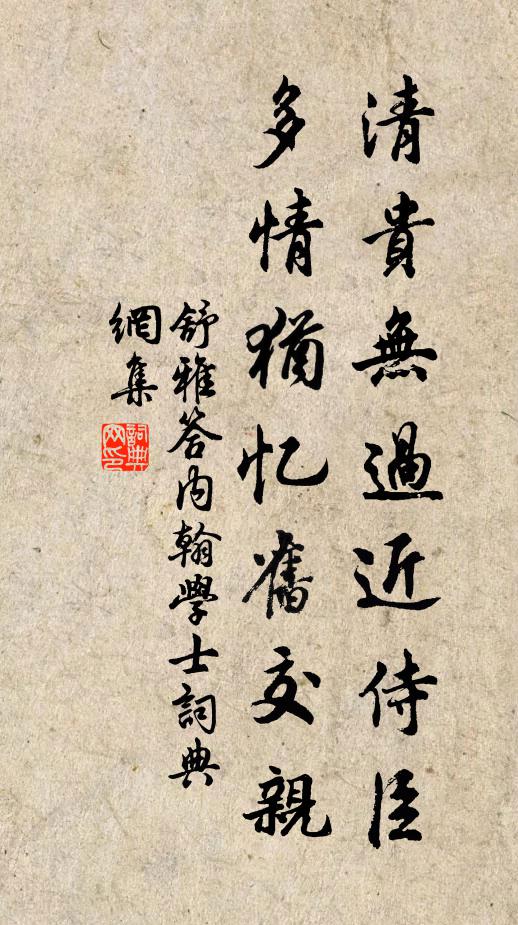 清貴無過近侍臣
多情猶忆舊交親
舒雅答内翰學士詞典
網集
詞典网印